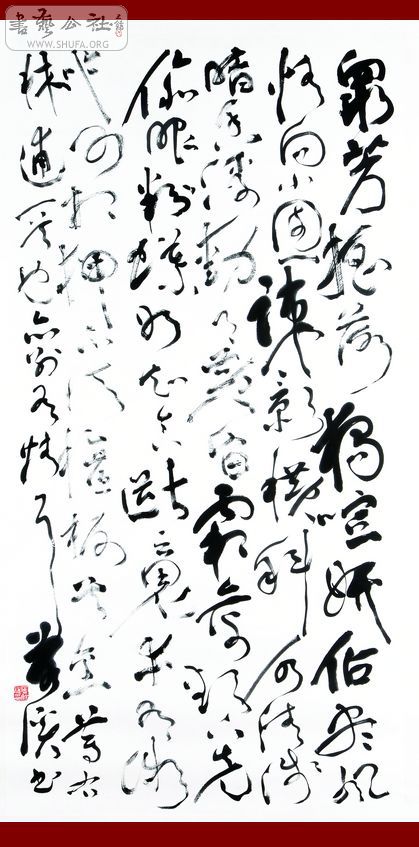 書藝公社
WWW.SHUFA.ORG
眾芳搖落獨暄妍佔盡風
情向小園疎影橫斜水清淺
暗香浮動月黃昏霜禽欲下先
偷眼粉蝶如知合斷魂幸有微
吟可相狎不須檀板共金尊右
林逋
書